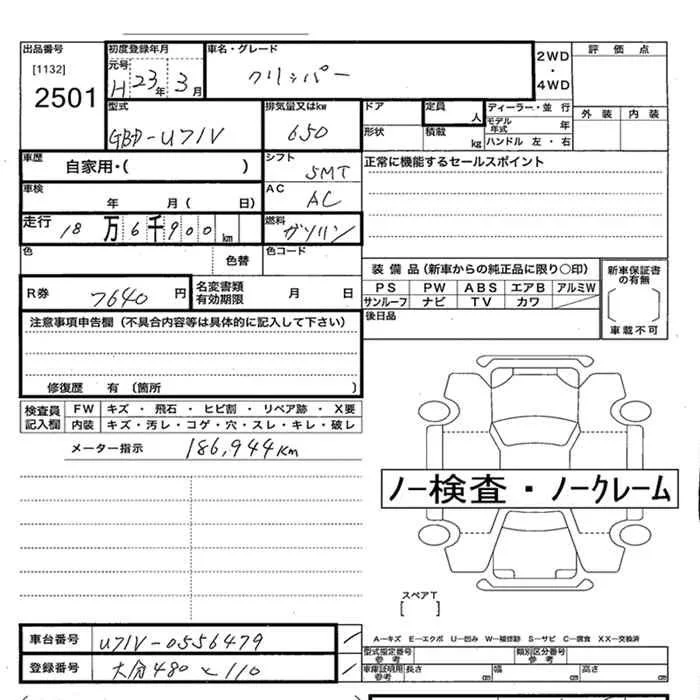 出品番号 初度登録年月 車名・グレード 2WD・4WD 評価点
[1132] 元号 H 23年 3月 クリッパー
2501
型式 排気量又はkw ドア 定員 人 ディーラー・並行 外装 内装
GBD-U71V 650 形状 積載 kg モデル年式 年
ハンドル 左・右
車歴 自家用・( ) シフト 5MT 正常に機能するセールスポイント
車検 年 月( 日) AC AC
走行 18万6千900km 燃料 ガソリン
色 色替 色コード
装備品(新車からの純正品に限り○印) 新車保証書の有無
R券 7640円 名変書類有効期限 月 日 PS PW ABS エアB アルミW
サンルーフ ナビ TV カワ
注意事項申告欄(不具合内容等は具体的に記入して下さい) 後日品 車載不可
修復歴 有(箇所 )
検査員記入欄 FW キズ・飛石・ヒビ割・リペア跡・X要
内装 キズ・汚レ・コゲ・穴・スレ・キレ・破レ
メーター指示 186,944Km
ノー検査・ノークレーム
スペアT
[ ]
車台番号 U71V-0556479 A―キズ E―エクボ U―凹み W―補修跡 S―サビ C―腐食 XX―交換済
型式指定番号 参考 類別区分番号 参考
登録番号 大分480 と 110 車庫証明用 参考 長さ cm 幅 cm 高さ cm